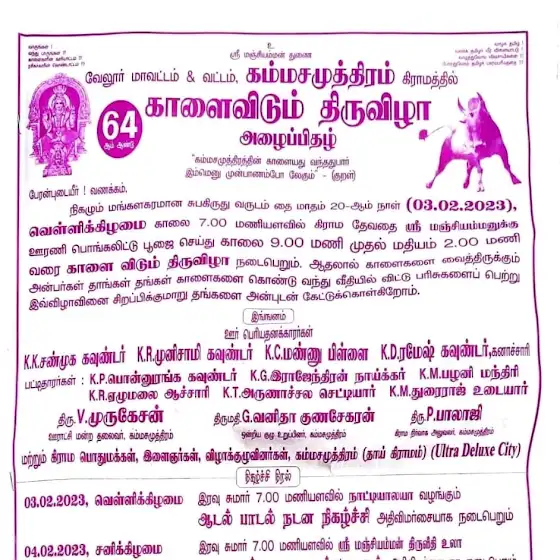 உ
ஸ்ரீ மஞ்சியம்மன் துணை
வேலூர் மாவட்டம் & வட்டம், கம்மசமுத்திரம் கிராமத்தில்
64
ஆம் ஆண்டு
காளைவிடும் திருவிழா
அழைப்பிதழ்
"கம்மசமுத்திரத்தின் காளையது வந்ததுபார்
இம்மெனு முன்பாணம்போ லேகும்" - (குறள்)
பேரன்புடையீர் ! வணக்கம்,
நிகழும் மங்களகரமான சுபகிருது வருடம் தை மாதம் 20-ஆம் நாள் (03.02.2023),
வெள்ளிக்கிழமை காலை 7.00 மணியளவில் கிராம தேவதை ஸ்ரீ மஞ்சியம்மனுக்கு
ஊரணி பொங்கலிட்டு பூஜை செய்து காலை 9.00 மணி முதல் மதியம் 2.00 மணி
வரை காளை விடும் திருவிழா நடைபெறும். ஆதலால் காளைகளை வைத்திருக்கும்
அன்பர்கள் தாங்கள் தங்கள் காளைகளை கொண்டு வந்து வீதியில் விட்டு பரிசுகளைப் பெற்று
இவ்விழாவினை சிறப்பிக்குமாறு தங்களை அன்புடன் கேட்டுக்கொள்கிறோம்.
இங்ஙனம்
ஊர் பெரியதனக்காரர்கள்
K.K.சண்முக கவுண்டர் K.R.முனிசாமி கவுண்டர் K.C.மண்ணு பிள்ளை K.D.ரமேஷ் கவுண்டர்,கனாச்சாரி
பட்டிதாரர்கள் : K.P.பொன்னுரங்க கவுண்டர் K.G.இராஜேந்திரன் நாய்க்கர் K.M.பழனி மந்திரி
K.R.ஏழுமலை ஆச்சாரி K.T.அருணாச்சல செட்டியார் K.M.துரைராஜ் உடையார்
திரு.V.முருகேசன் திருமதி.G.வனிதா குணசேகரன் திரு.P.பாலாஜி
ஊராட்சி மன்ற தலைவர், கம்மசமுத்திரம் ஒன்றிய குழு உறுப்பினர், கம்மசமுத்திரம் கிராம நிர்வாக அலுவலர், கம்மசமுத்திரம்
மற்றும் கிராம பொதுமக்கள், இளைஞர்கள், விழாக்குழுவினர்கள், கம்மசமுத்திரம் (தாய் கிராமம்) (Ultra Deluxe City)
நிகழ்ச்சி நிரல்
03.02.2023, வெள்ளிக்கிழமை இரவு சுமார் 7.00 மணியளவில் நாட்டியாலயா வழங்கும்
ஆடல் பாடல் நடன நிகழ்ச்சி அதிவிமர்சையாக நடைபெறும்
04.02.2023, சனிக்கிழமை இரவு சுமார் 7.00 மணியளவில் ஸ்ரீ மஞ்சியம்மன் திருவீதி உலா